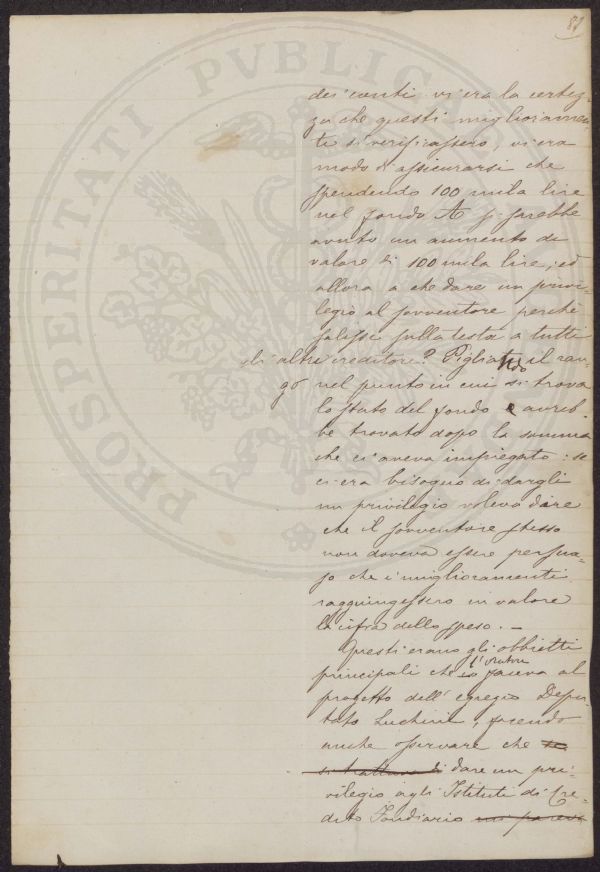 81
dei conti vi era la certez-
za che questi miglioramen-
ti si verificassero, vi era
modo di assicurarsi che
spendendo 100 mila lire
nel fondo A si sarebbe
avuto un aumento di
valore di 100 mila lire, ed
allora a che dare un privi-
legio al sovventore perchè
salisse sulla testa a tutti
gli altri creditori? Pigliando il ran-
go nel punto in cui si trova
lo stato del fondo e avreb-
be trovato dopo la somma
che ci aveva impiegato: se
ci era bisogno di dargli
un privilegio voleva dire
che il sovventore stesso
non doveva essere persua-
so che i miglioramenti
raggiungessero in valore
la cifra dello speso. —
Questi erano gli obbietti
principali che l'oratore faceva al
progetto dell' egregio Depu-
tato Luchini, facendo
anche osservare che se
si trattava di dare un pri-
vilegio agli Istituti di Cre-
dito Fondiario non pareva
PROSPERITATI PVBLICAE